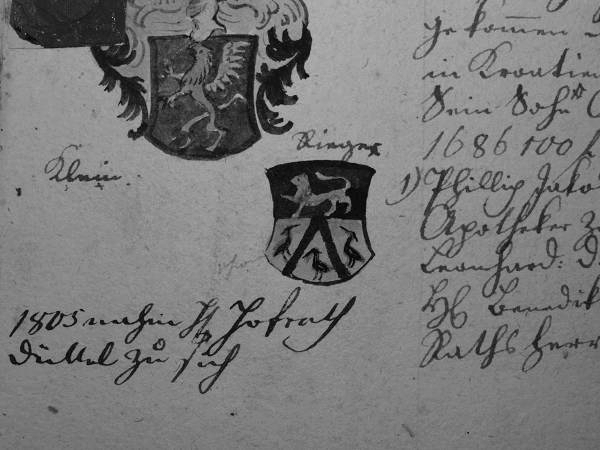 Klein
Rieger
1805 nahm H Hofrath
Düttel zu sich
gekommen
in Kroatien
Sein Sohn
1686 100
1) Phillip Jako
Apotheker
Leonhard: D
H Benedik
Raths Herr